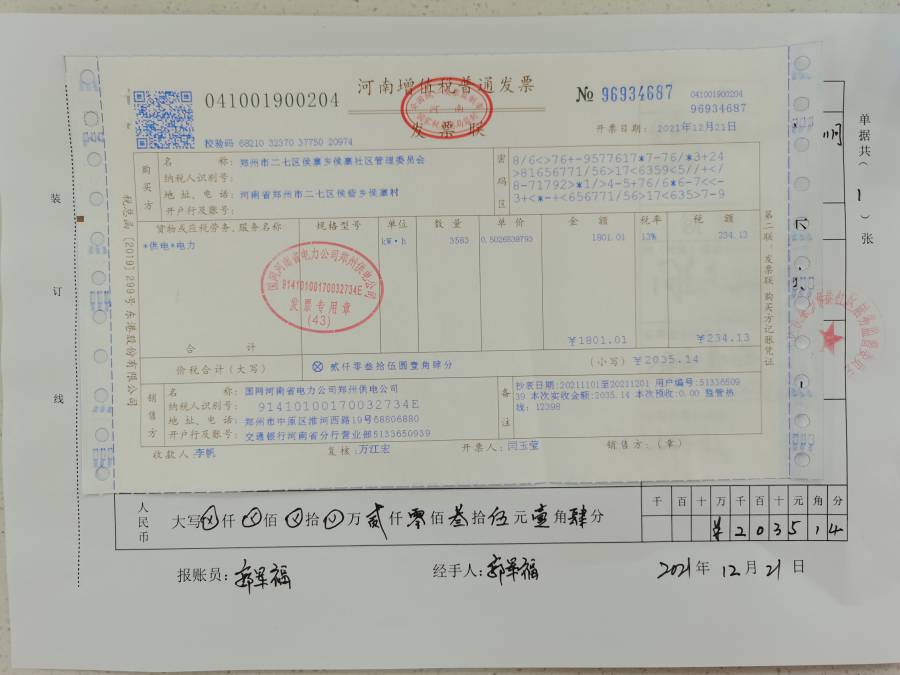 河南增值税普通发票
发票联
041001900204
№ 96934687
041001900204
96934687
校验码 68210 32370 37750 20974
开票日期: 2021年12月21日
购买方
名 称: 郑州市二七区侯寨乡侯寨社区管理委员会
纳税人识别号:
地 址、电 话: 河南省郑州市二七区侯寨乡侯寨村
开户行及账号:
密码区
8/6<>76+-9577617*7-76/*3+24
>81656771/56>17<6359<5//+</
8-71792>*1/>4-5+76/6*6-7<<-
3+<*-+<656771/56>17<635>7-9
货物或应税劳务、服务名称 规格型号 单位 数 量 单 价 金 额 税率 税 额
*供电*电力 kW·h 3583 0.5026538793 1801.01 13% 234.13
国网河南省电力公司郑州供电公司
91410100170032734E
发票专用章
(43)
合 计 ¥1801.01 ¥234.13
价税合计(大写) ⊗ 贰仟零叁拾伍圆壹角肆分 (小写) ¥2035.14
销售方
名 称: 国网河南省电力公司郑州供电公司
纳税人识别号: 91410100170032734E
地 址、电 话: 郑州市中原区淮河西路19号68806880
开户行及账号: 交通银行河南省分行营业部5133650939
备注
抄表日期:20211101至20211201 用户编号:51336509
39 本次实收金额:2035.14 本次预收:0.00 监管热
线: 12398
收款人:李帆 复核:万红宏 开票人:闫玉莹 销售方:(章)
税总函[2019]299号东港股份有限公司
第二联:发票联 购买方记账凭证
装
订
线
单据共(1)张
人民币
大写 仟 佰 拾 万 贰仟 零佰 叁拾 伍元 壹角 肆分
千 百 十 万 千 百 十 元 角 分
¥ 2 0 3 5 1 4
报账员: 郭军福 经手人: 郭军福 2021年 12月 21日